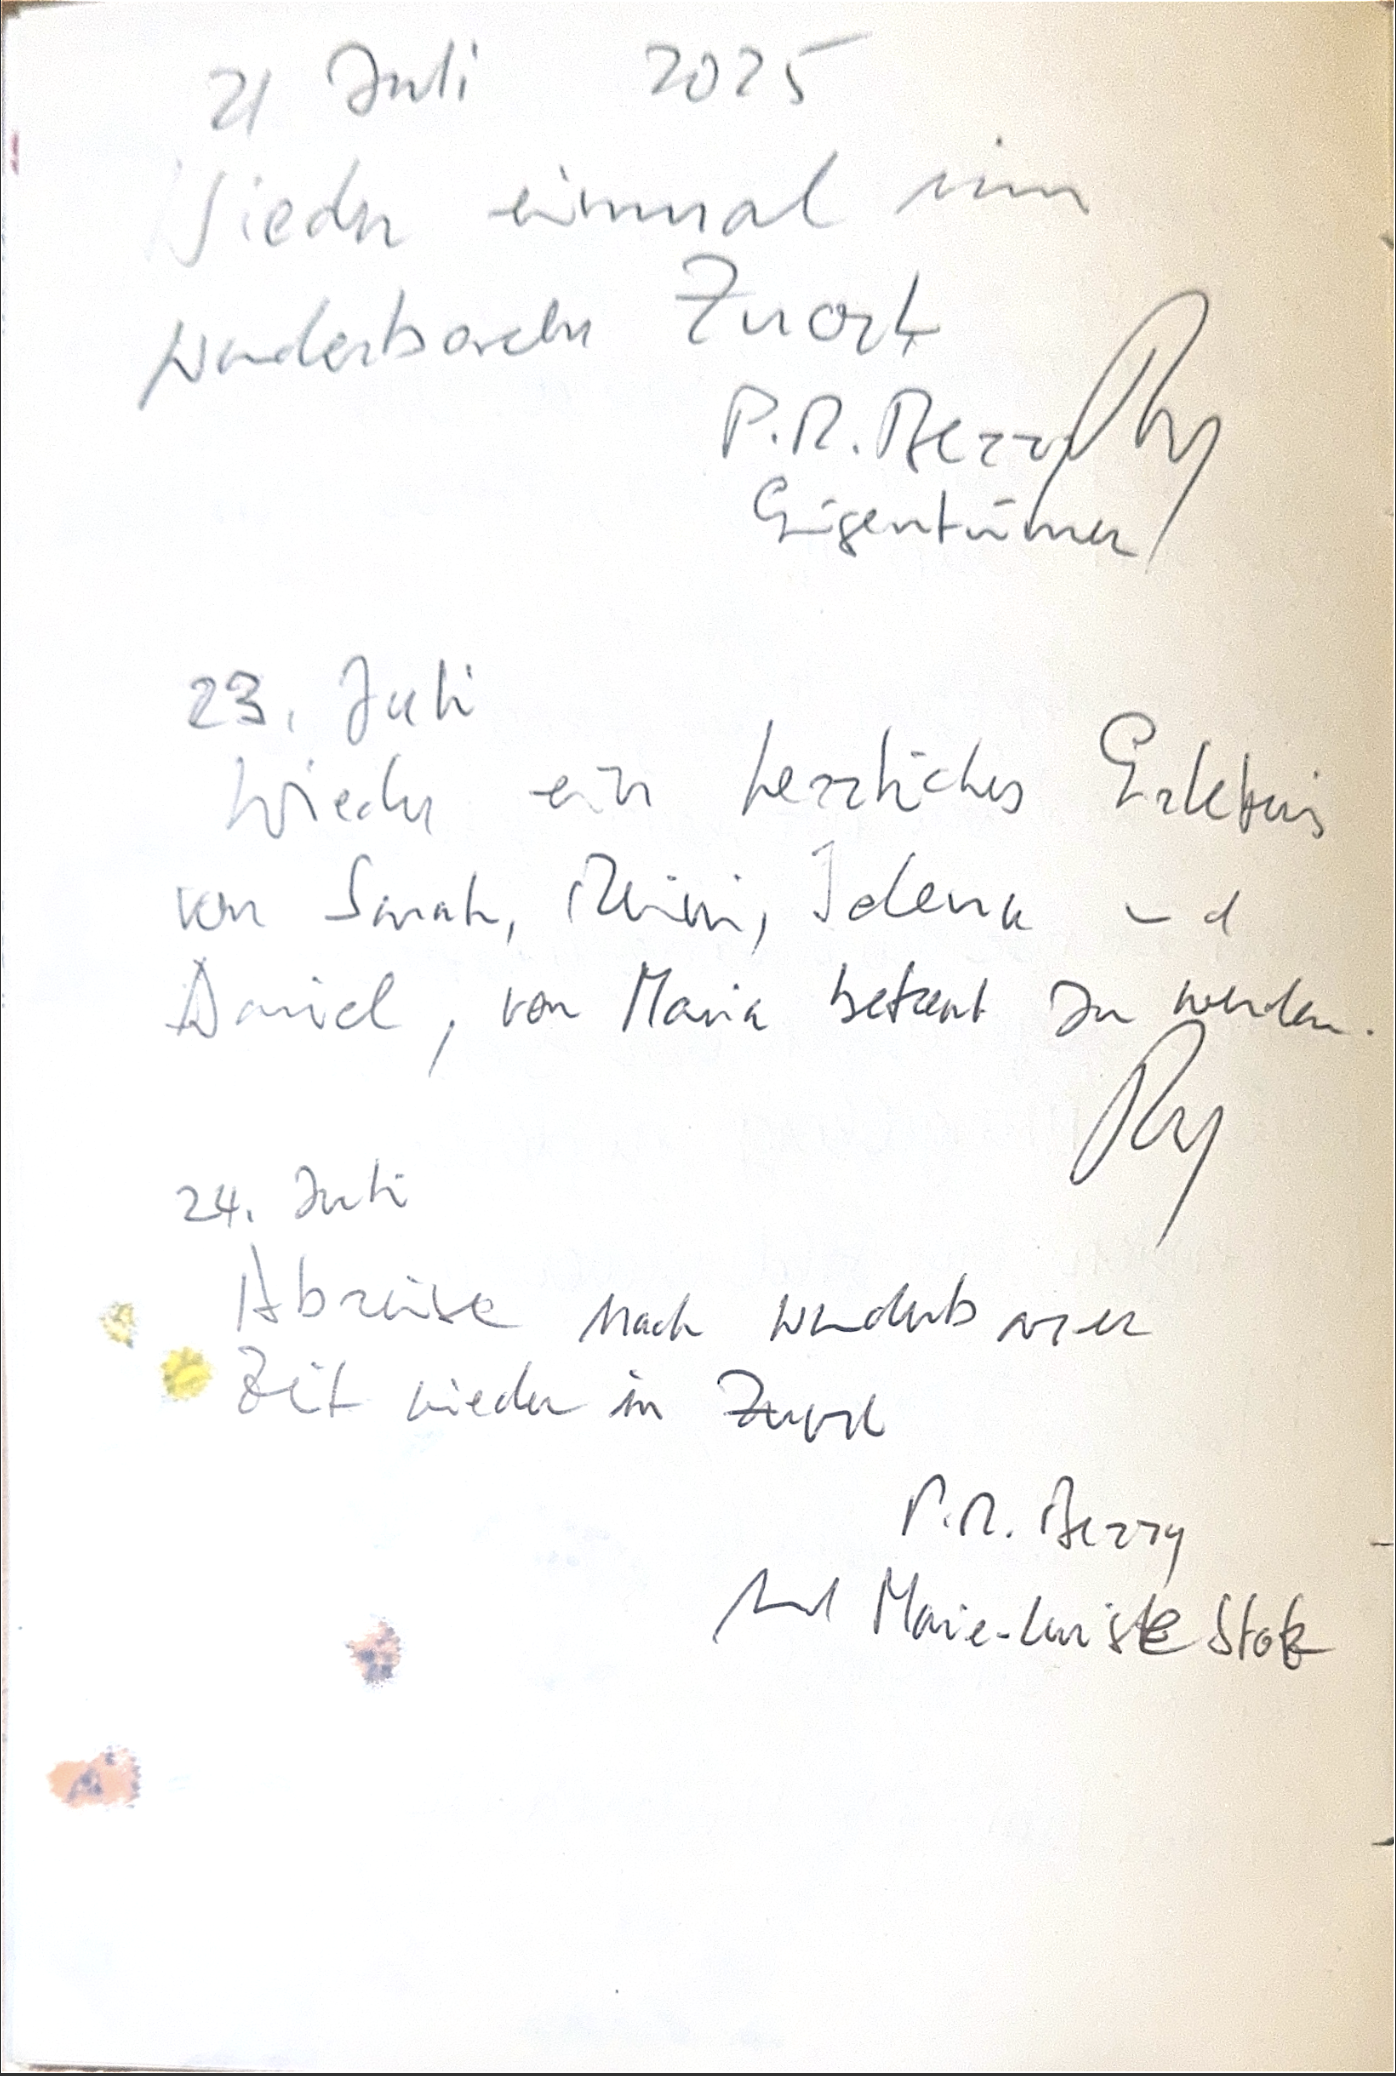 21 Juli 2025
Wieder einmal im
wunderbaren Zuort
P.R. Berry
Eigentümer
23. Juli
Wieder ein herzliches Erlebnis
von Sarah, und
Daniel, von Maria betreut zu werden.
24. Juli
Abreise nach wunderbarer
Zeit wieder in Zuort
P.R. Berry
und Marie-Luise